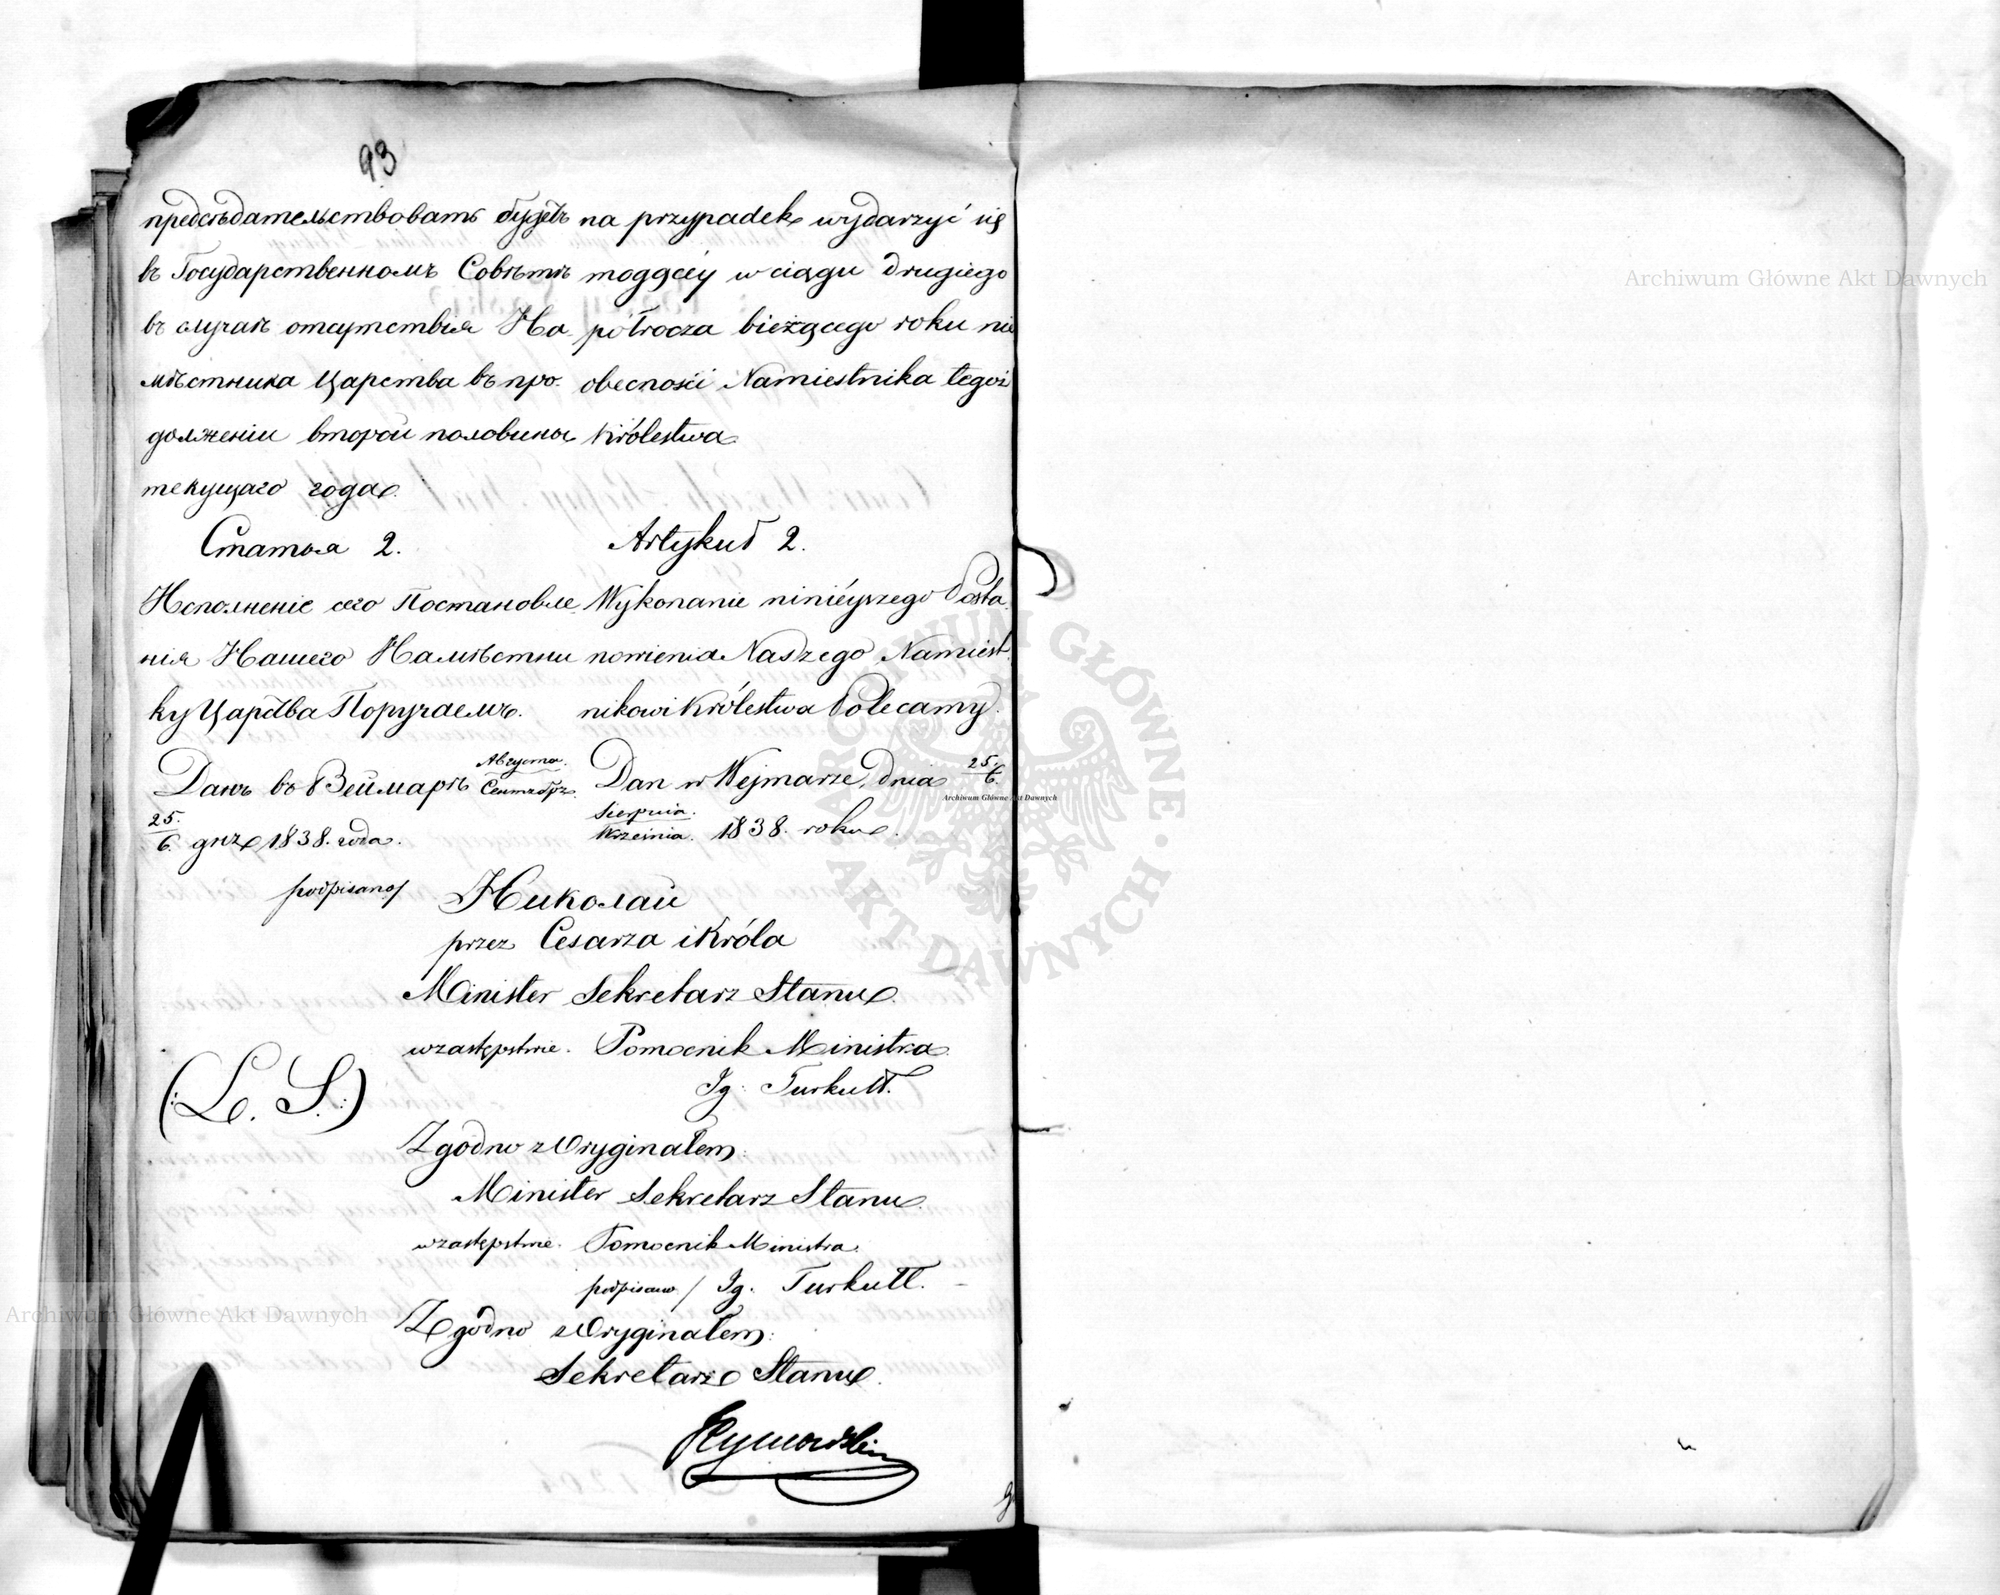 93
предсѣдательствовать будетъ
въ Государственномъ Совѣтѣ
въ случаѣ отсутствія На
мѣстника Царства въ про.
долженіи второй половины
текущаго года.
Статья 2.
Исполненіе сего Постановле
нія Нашего Намѣстни
ку Царства Поручаемъ.
Данъ въ Веймарѣ Августа.
Сентября.
25.
6. дня 1838. года.
na przypadek wydarzyć się
mogącéy w ciągu drugiego
półrocza bieżącego roku nie
obecności Namiestnika tegoż
Królestwa
Artykuł 2.
Wykonanie ninieyszego Posta.
nowienia Naszego Namiest
nikowi Królestwa Polecamy.
Dan w Wejmarze, dnia 25.
6.
Sierpnia.
Września. 1838. roku.
podpisano/ Николай
przez Cesarza i Króla
Minister Sekretarz Stanu.
w zastępstwie. Pomocnik Ministra.
Ig: Turkułł.
(:L. S.:)
Zgodno z Oryginałem:
Minister Sekretarz Stanu.
w zastępstwie. Pomocnik Ministra.
podpisano / Ig. Turkułł. -
Zgodno z Oryginałem:
Sekretarz Stanu.
Archiwum Główne Akt Dawnych
Archiwum Główne Akt Dawnych
Archiwum Główne Akt Dawnych
ARCHIWUM GŁÓWNE AKT DAWNYCH